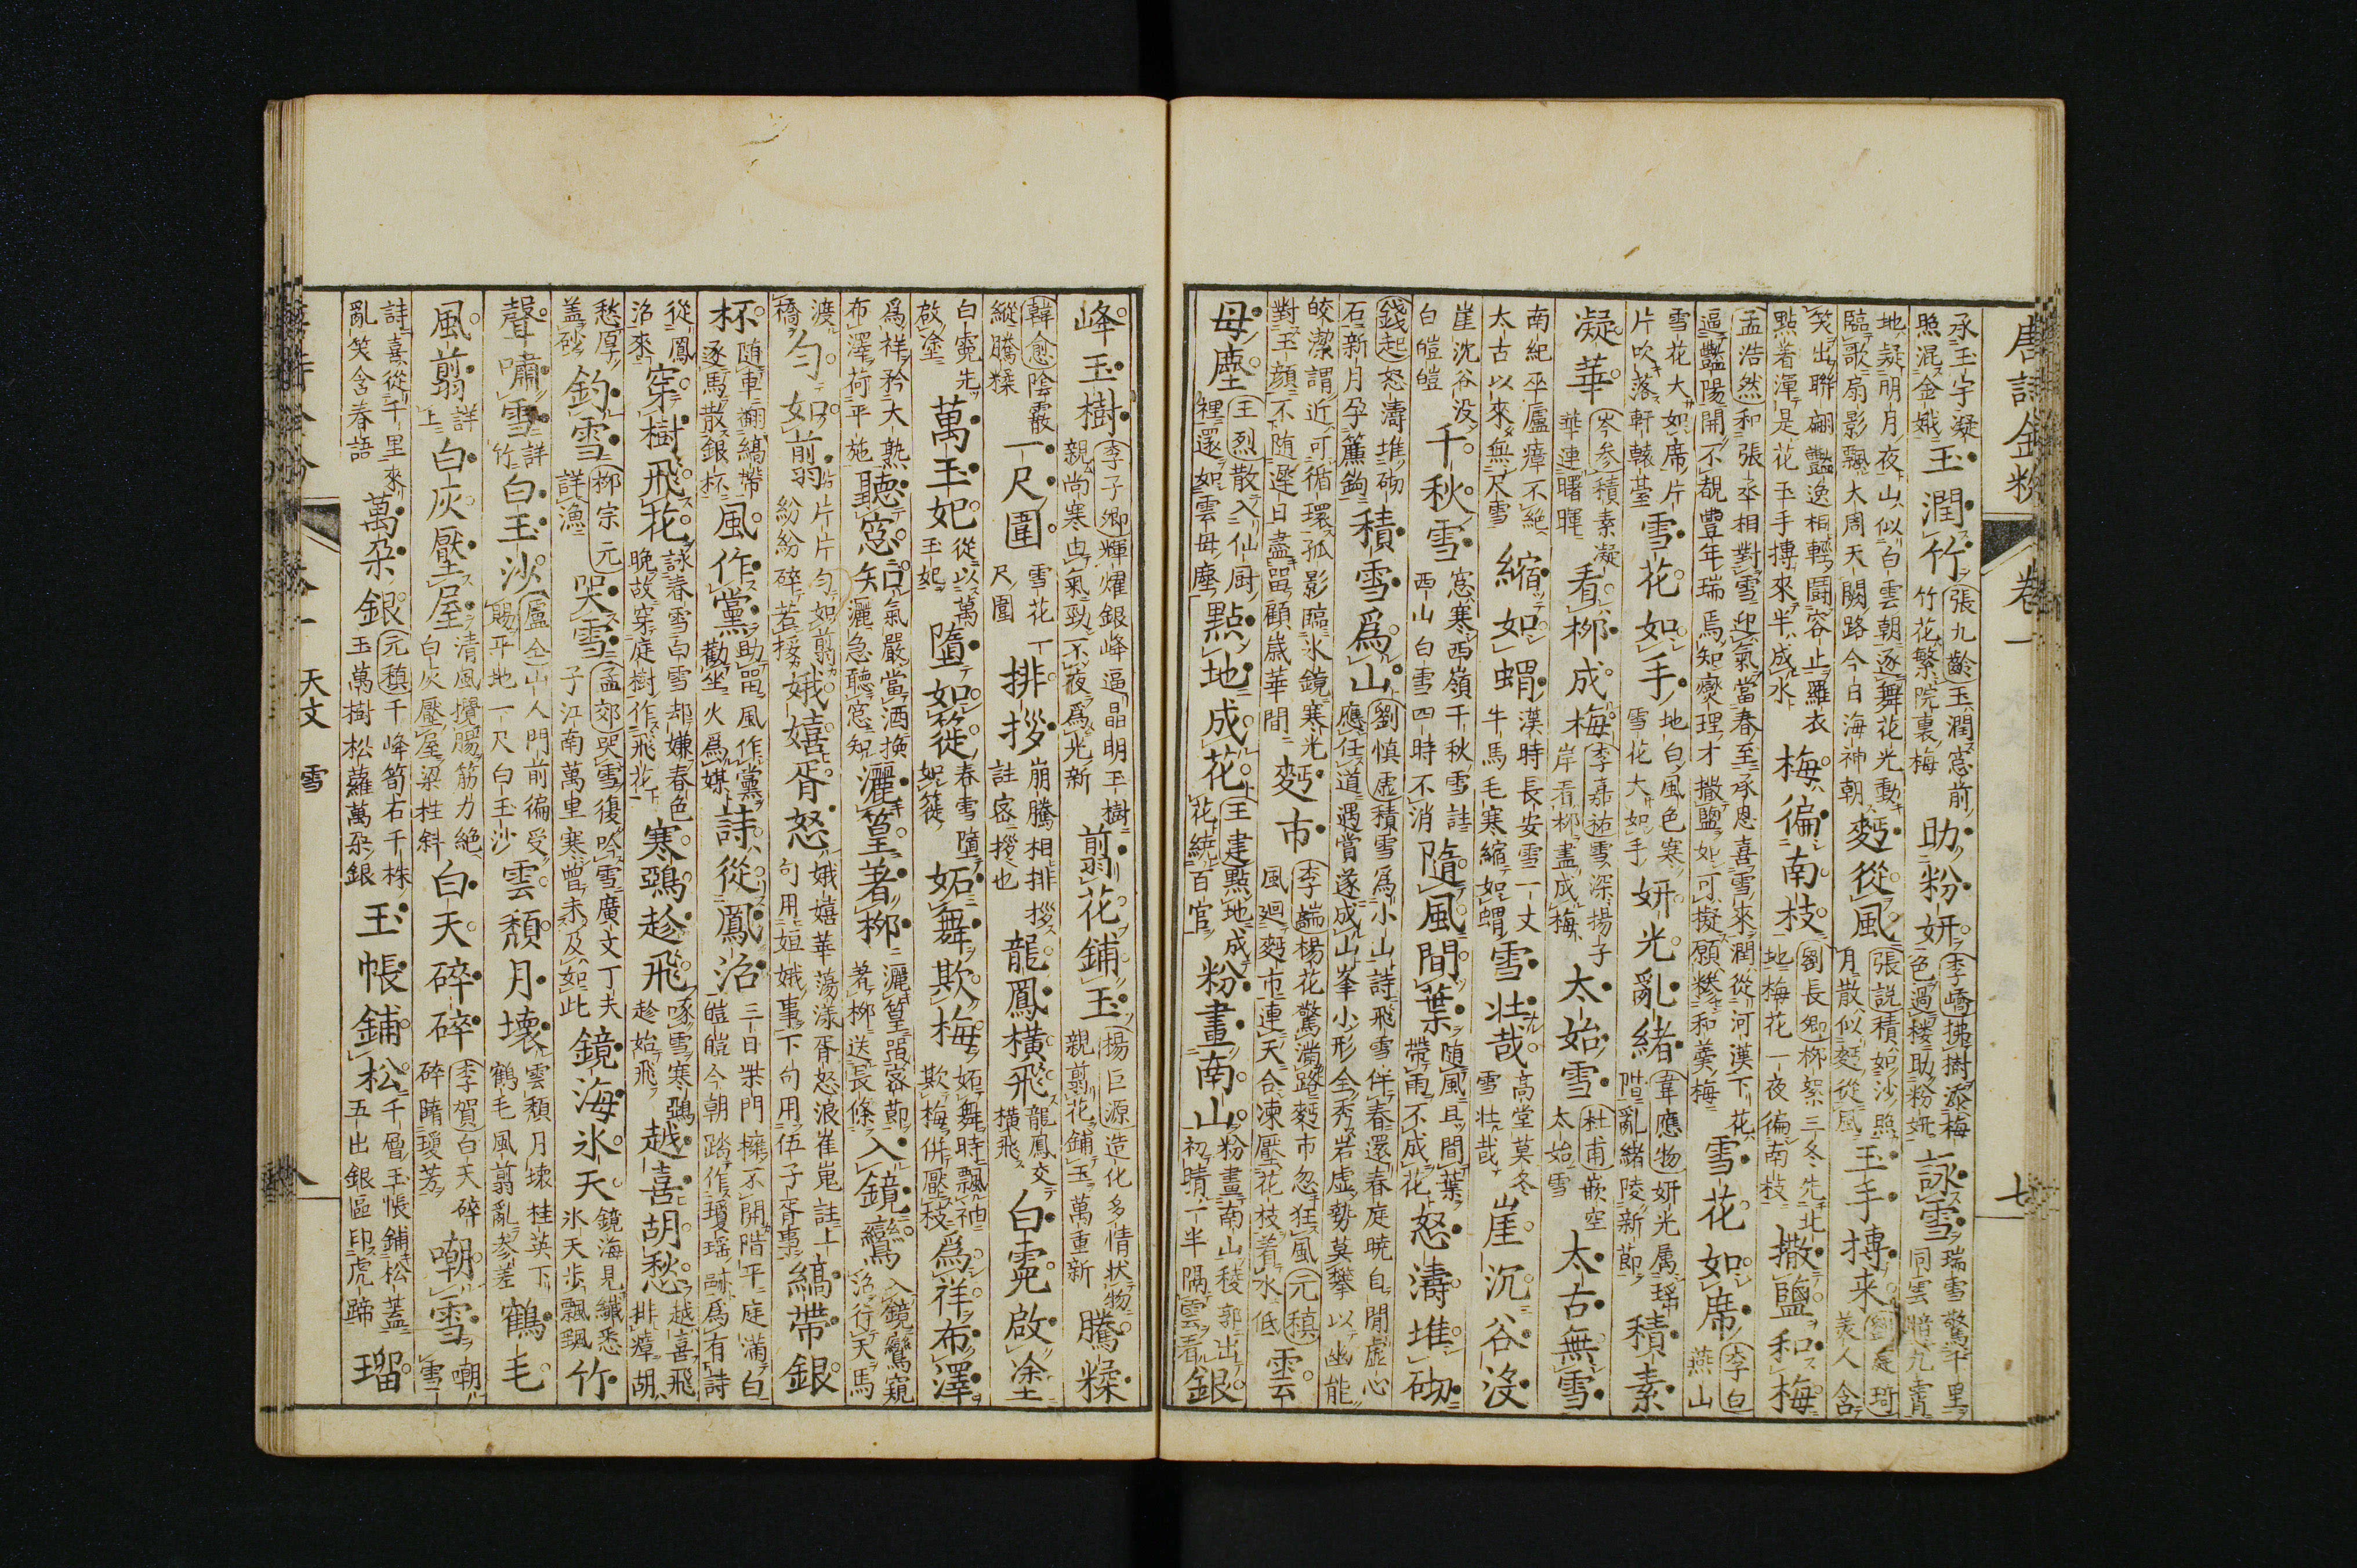 唐詩金粉 卷一 七
承玉宇凝照混金娥 玉潤竹 張九齡玉潤窓前竹花繁院裏梅 助粉妍 李嶠拂樹添梅色過樓助粉妍 詠雪 瑞雪驚千里同雲暗九霄
地疑明月夜山似白雲朝逐舞花光動臨歌扇影飄大周天闕路今日海神朝 麪從風 張說積如沙照月散似麪從風 玉手摶来 劉庭琦美人含
笑出聯翩艷逸相輕鬪容止羅衣點着渾是花玉手摶來半成水 梅徧南枝 劉長卿柳絮三冬先北地梅花一夜徧南枝 撒鹽和梅
孟浩然和張丞相對雪迎氣當春至承恩喜雪來潤從河漢下花逼艷陽開不覩豊年瑞焉知燮理才撒鹽如可擬願糝和羹梅 雪花如席 李白燕山
雪花大如席片片吹落軒轅䑓 雪花如手 地白風色寒雪花大如手 妍光亂緒 韋應物妍光属瑶階亂緒陵新節 積素
凝華 岑参積素凝華連曙暉 看柳成梅 李嘉祐雪深揚子岸看柳盡成梅 太始雪 杜甫嵌空太始雪 太古無雪
南紀巫廬瘴不絶太古以來無尺雪 縮如蝟 漢時長安雪一丈牛馬毛寒縮如蝟 雪壮哉 高堂莫冬雪壮哉 崖沉谷沒
崖沈谷没白皚皚 千秋雪 窓寒西嶺千秋雪註西山白雪四時不消 隨風間葉 随風且間葉帶雨不成花 怒濤堆砌
錢起怒濤堆砌石新月孕簾鉤 積雪爲山 劉慎虚積雪爲小山詩飛雪伴春還春庭暁自閒虚心應任道遇賞遂成山峯小形全秀岩虚勢莫攀以幽能
皎潔謂近可循環孤影臨氷鏡寒光對玉顔不随遲日盡留顧歳華間 麪市 李端楊花驚滿路麪市忽狂風 元稹風廻麪市連天合凍壓花枝着水低 雲
母塵 王烈散入仙厨裡還如雲母塵 點地成花 王建點地成花繞百官 粉畫南山 粉畫南山稜郭出初晴一半隔雲看 銀
峰玉樹 李子卿輝燿銀峰逼晶明玉樹親尚寒也氣勁不夜爲光新 翦花鋪玉 楊巨源造化多情狀物親翦花鋪玉萬重新 騰糅
韓愈陰霰縱騰糅 一尺圍 雪花一尺圍 排拶 崩騰相排拶註密拶也 龍鳳橫飛 龍鳳交橫飛 白霓啟塗
白霓先啟塗 萬玉妃 從以萬玉妃 墮如簁 春雪墮如簁 妬舞欺梅 妬舞時飄袖欺梅併壓枝 爲祥布澤
爲祥矜大熟布澤荷平施 聽窓知 氣嚴當酒換灑急聽窓知 灑篁著柳 灑篁留密節著柳送長條 入鏡鸞 入鏡鸞窺沼行天馬
渡橋 匀如翦 片片匀如翦紛紛碎若挼 娥嬉胥怒 娥嬉華蕩漾胥怒浪崔嵬註上句用姮娥事下句用伍子胥事 縞帶銀
杯 随車翻縞帶逐馬散銀杯 風作黨 助留風作黨勸坐火爲媒 詩從鳳沼 三日柴門擁不開階平庭滿白皚皚今朝踏作瓊瑶跡爲有詩
從鳳沼來 穿樹飛花 詠春雪白雪却嫌春色晚故穿庭樹作飛花 寒鵶趁飛 啄雪寒鵶趁始飛 越喜胡愁 越喜飛排瘴胡
愁厚盖砂 釣雪 柳宗元詳漁 哭雪 孟郊哭雪復吟雪廣文丁夫子江南萬里寒曾未及如此 鏡海氷天 鏡海見纎悉氷天歩飄飄 竹
聲嘯雪 詳竹 白玉沙 盧仝山人門前徧受賜平地一尺白玉沙 雲頽月壞 雲頽月壊桂英下鶴毛風翦亂參差 鶴毛
風翦 詳上 白灰壓屋 清風攪腸筋力絶白灰壓屋梁柱斜 白天碎碎 李賀白天碎碎隋瓊芳 嘲雪 嘲雪
詩喜從千里來亂笑含春語 萬朶銀 元稹千峰筍石千株玉萬樹松蘿萬朶銀 玉帳鋪松 千層玉帳鋪松蓋五出銀區印虎蹄 瑠
天文 雪